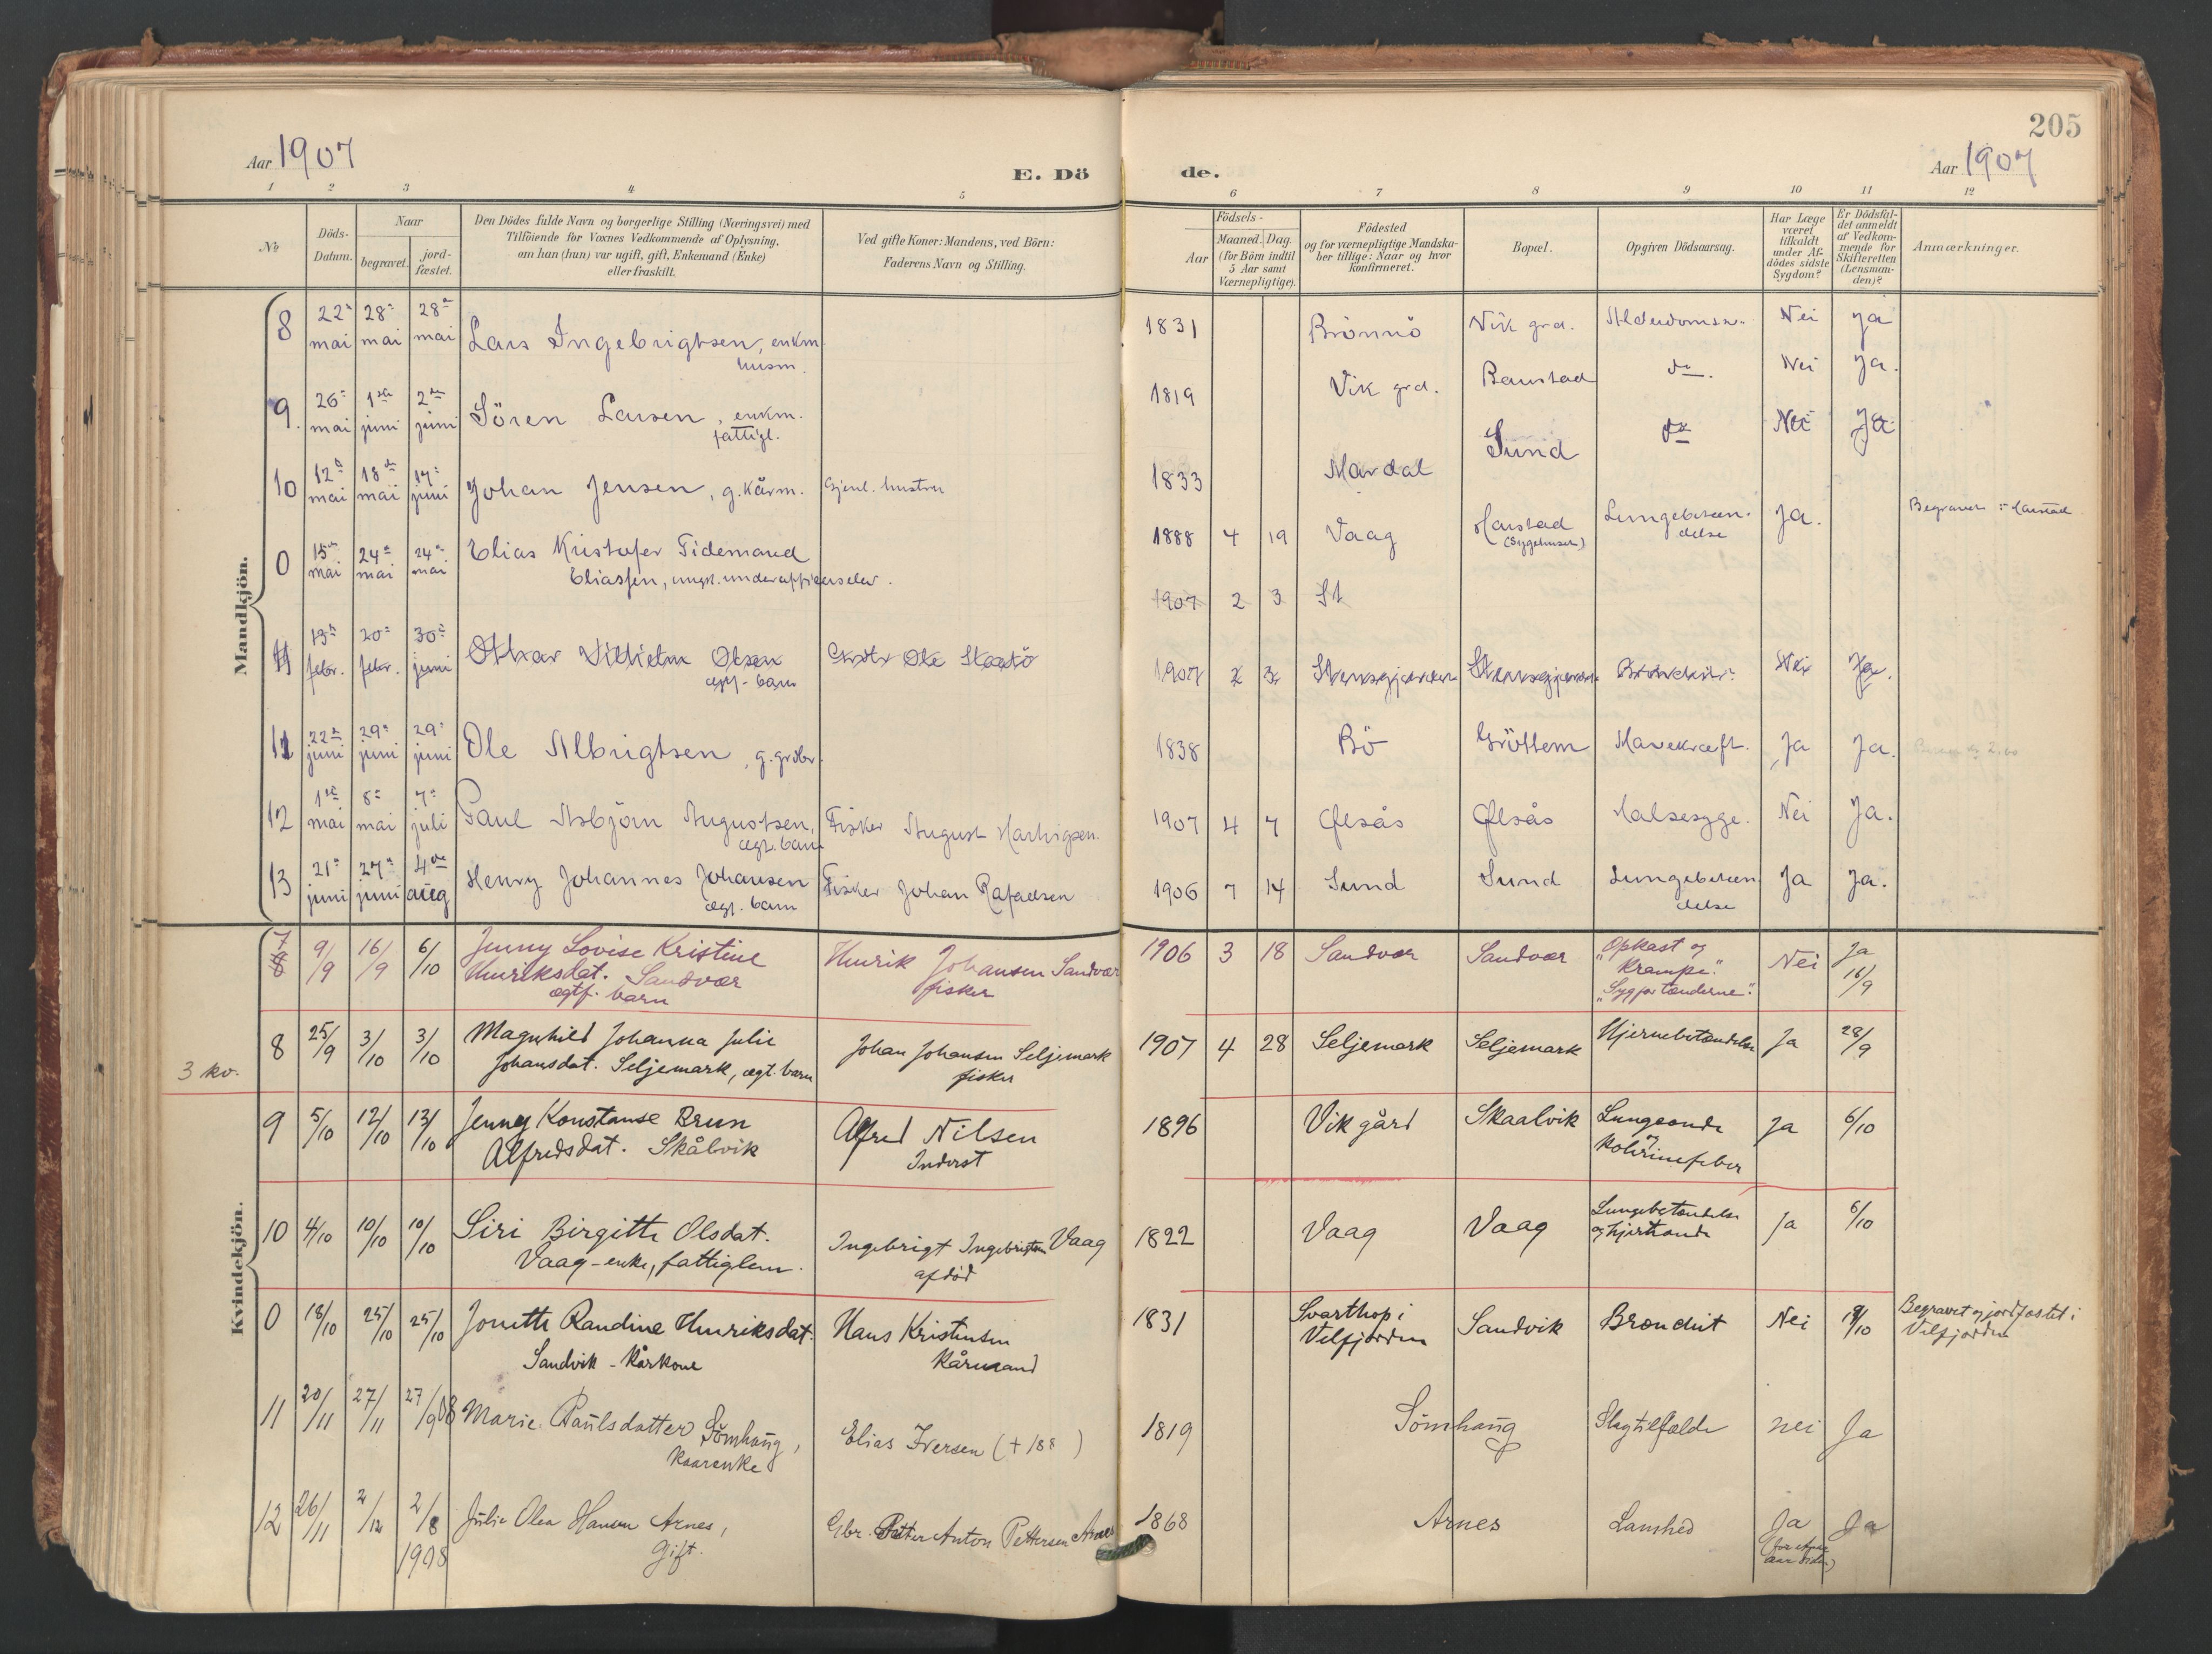 205
Aar 1907
E. Dö
de.
Aar 1907
1 2 3 4 5 6 7 8 9 10 11 12
No
Döds-Datum.
Naar
begravet.
jord-fæstet.
Den Dödes fulde Navn og borgerlige Stilling (Næringsvei) med
Tilföiende for Voxnes Vedkommende af Oplysning,
om han (hun) var ugift, gift, Enkemand (Enke)
eller fraskilt.
Ved gifte Koner: Mandens, ved Börn:
Faderens Navn og Stilling.
Födsels-
Aar
Maaned. Dag.
(for Börn indtil
5 Aar samt
Værnepligtige).
Födested
og for værnepligtige Mandska-
ber tillige: Naar og hvor
konfirmeret.
Bopæl.
Opgiven Dödsaarsag.
Har Læge
været
tilkaldt
under Af-
dödes sidste
Sygdom?
Er Dödsfal-
det anmeldt
af Vedkom-
mende for
Skifteretten
(Lensman-
den)?
Anmærkninger.
Mandkjön.
8 22 mai 28 mai 28 mai Lars Ingebrigtsen, enkm. 1831 Brönnö Vik grd. Alderdomsv. Nei Ja
husm.
9. 26 mai 1ste juni 2den juni Sören Larsen, enkm. 1819 Vik grd. Baustad do. Nei Ja.
fattigl.
10 12 mai 18 mai 17 juni Johan Jensen, g. kårm. Gjenl. hustru 1833 Mardal Sund do Nei Ja
0 15 mai 24 mai 24 mai Elias Kristofer Tidemand 1888 4 19 Vaag Harstad Lungebetæn- Ja. Begravet i Harstad
Eliassen, ungk. underofficerselev. (Sygehuset) delse
1907 2 3 St
11 19 febr. 20 febr. 30 juni Othar Vilhelm Olsen Ole 1907 2 3 Nei Ja.
ægt. barn
11 22 juni 29 juni 29 juni Ole Albrigtsen, g. grdbr. 1838 Bö Gröttem Mavekræft. Ja Ja.
12 1ste mai 8 mai 7 juli Paul Asbjörn Augustsen, Fisker August Hartvigsen. 1907 4 7 Ølsås Ølsås Halsesyge. Nei Ja.
ægt. barn
13 21 juni 27 juni 4de aug Henry Johannes Johansen Fisker Johan Rafaelsen 1906 7 14 Sund Sund Lungebetæn Ja Ja.
ægt. barn delse
Kvindekjön.
3 kv.
7 8 9/9 16/9 6/10 Jenny Lovise Kristine Henrik Johansen Sandvær 1906 3 18 Sandvær Sandvær "Opkast og Nei Ja
Henriksdat. Sandvær fisker Krampe". 16/9
ægtf. barn "Syg for tænderne".
8 25/9 3/10 3/10 Magnhild Johanna Julie Johan Johansen Seljemark 1907 4 28 Seljemark Seljemark Hjernebetændelse Ja 28/9
Johansdat. Seljemark, ægt. barn fisker
9 5/10 12/10 13/10 Jenny Konstanse Brun Alfred Nilsen 1896 Vik gård Skaalvik Lungeonde Ja 6/10
Alfredsdat. Skålvik Inderst og
Kolerinefeber
10 4/10 10/10 10/10 Siri Birgitte Olsdat. Ingebrigt Ingebrigtsen Vaag 1822 Vaag Vaag Lungebetændelse Ja 6/10
Vaag - enke, fattiglem. afdöd og hjerteonde
0 18/10 25/10 25/10 Jonette Randine Henriksdat. Hans Kristensen 1831 Svarthop i Sandvik Bronchit Nei 19/10 Begravet og jordfæstet i
Sandvik - Kårkone Kårmand Velfjorden Velfjorden
11 20/11 27/11 27/9 08 Marie Paulsdatter Sömhaug, Elias Iversen (+ 188 ) 1819 Sömhaug Slagtilfælde nei Ja
Kaarenke
12 26/11 2/12 2/8 Julie Olea Hansen Arnes, Gbr. Petter Anton Pettersen Arnes 1868 Arnes Lamhed Ja Ja
1908 Gift. aar siden)